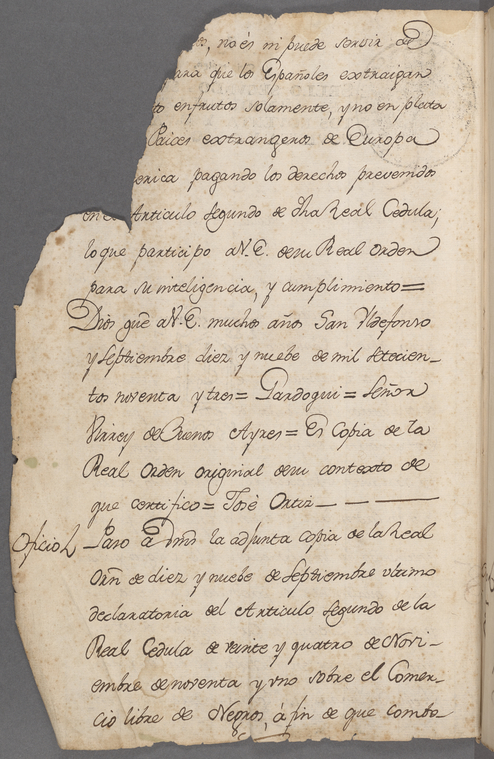 no és ni puede servir de
para que los Españoles extraigan
enfrutos solamente, y no en plata
Paices extrangeros de Europa
erica pagando los derechos prevenidos
en el Articulo segundo de dha Real Cedula;
lo que participo a V. E. de su Real orden
para su inteligencia, y cumplimiento=
Dios gue a V. E. muchos años San Yldefonso
y Septiembre diez y nuebe de mil setecien-
tos noventa y tres= Gardoqui= Señor
Virrey de Buenos Ayres= Es Copia de la
Real Orden original de su contexto de
que certifico= José Ortiz
Oficio Paso a Vmd la adjunta copia de la Real
Orn de diez y nuebe de Septiembre ultimo
declaratoria del Articulo segundo de la
Real Cedula de veinte y quatro de Novi-
embre de noventa y uno sobre el Comer-
cio libre de Negros, á fin de que